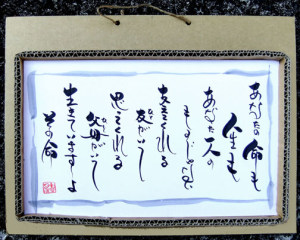 あなたの命も
人生も
あなた一人の
ものじゃない
支えてくれる
友がいて
思ってくれる
父母がいて
生きていますよ
その命